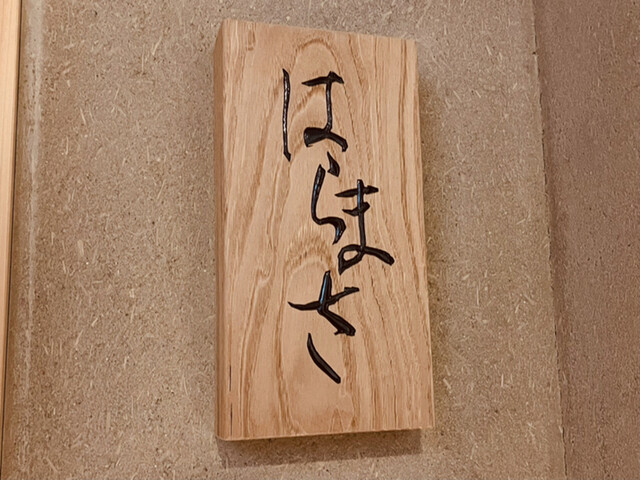 はらまさ